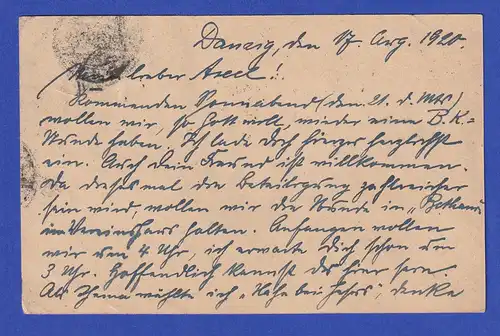 Danzig, den 17. Aug. 1920.
Mein lieber Axel!
Kommenden Sonnabend (den 21. d. Mts)
wollen wir, so Gott will, wieder eine B.K.-
Stunde haben. Ich lade Dich hierzu herzlichst
ein. Auch dein Freund ist willkommen.
Da diesmal die Beteiligung zahlreicher
sein wird, wollen wir die Stunde in „Bethanien“
im Vereinshaus halten. Anfangen wollen
wir um 4 Uhr, ich erwarte Dich schon um
3 Uhr. Hoffentlich kannst du hier sein.
Als Thema wählte ich „Nahe bei Jesus“, denke